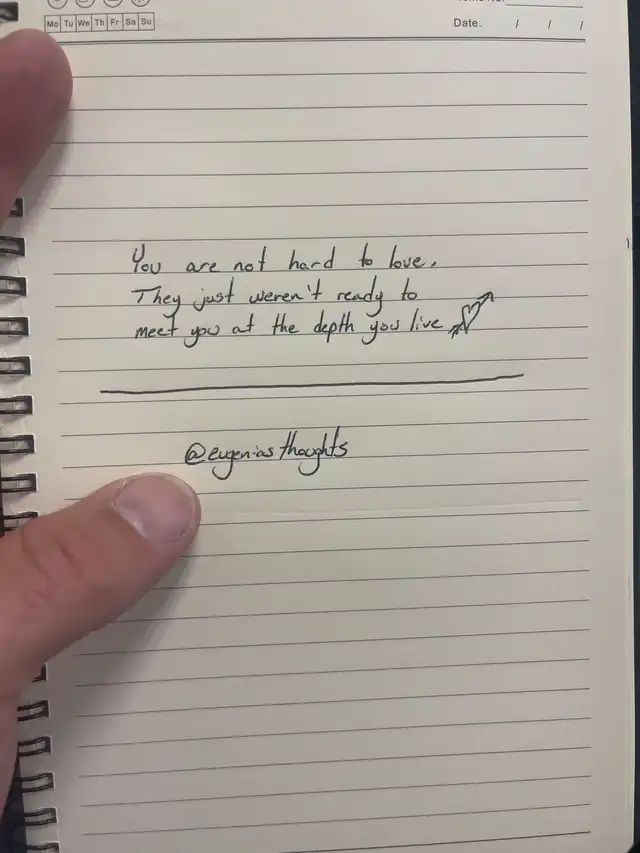 Mo Tu We Th Fr Sa Su
Date. / / /
You are not hard to love.
They just weren't ready to
meet you at the depth you live
@eugenias thoughts